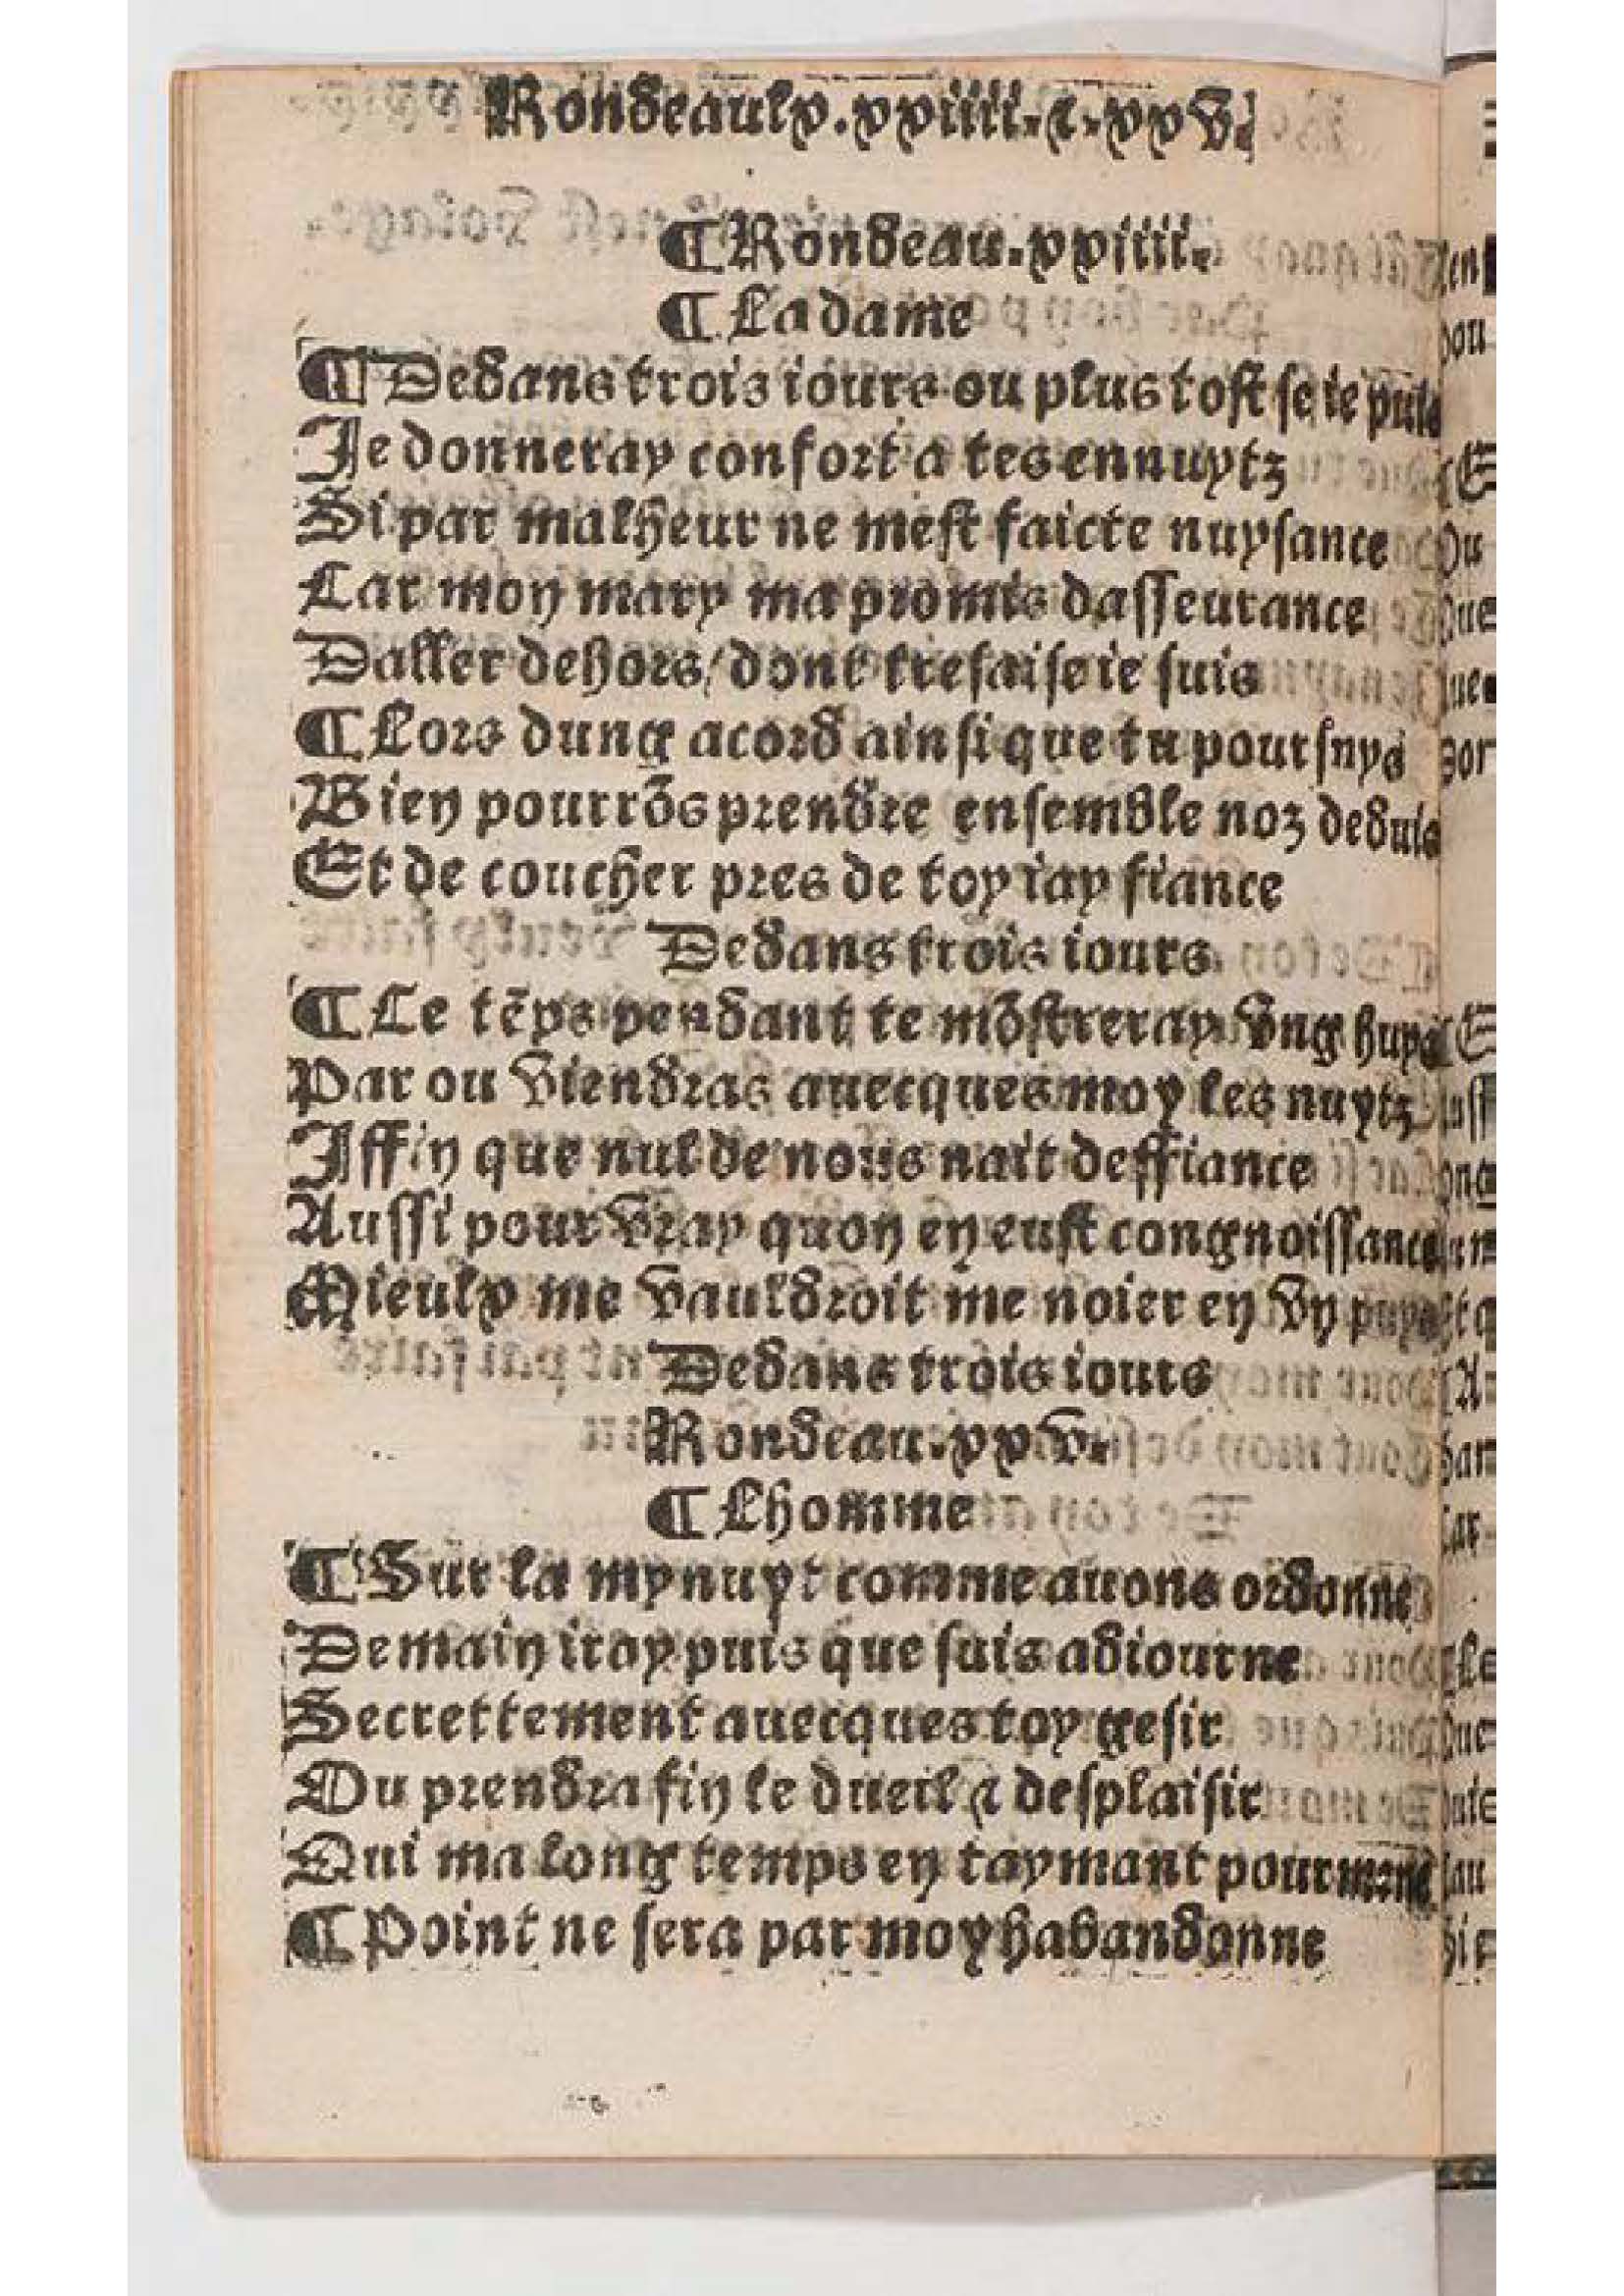 Rondeaulx.xxiiii.⁊.xxv.
¶Rondeau.xxiiii.
¶La dame
¶Dedans trois iours ou plus tost se ie puis
Je donneray confort a tes ennuytz
Si par malheur ne mest faicte nuysance
Car mon mary ma promis dasseurance
Daller dehors/dont tresaise ie suis
¶Lors dung acord ainsi que tu poursuys
Bien pourrōs prendre ensemble noz deduis
Et de coucher pres de toy iay fiance
Dedans trois iours
¶Le tēps pendant te mōstreray vng huys
Par ou viendras auecques moy les nuytz
Affin que nul de nous nait deffiance
Aussi pour vray quon en eust congnoissance
Mieulx me vauldroit me noier en vn puys
Dedans trois iours
Rondeau.xxv.
¶Lhomme
¶Sur la mynuyt comme auons ordonne
Demain iray puis que suis adiourne
Secrettement auecques toy gesir
Ou prendra fin le dueil ⁊ desplaisir
Qui ma long temps en taymant pourmene
¶Point ne sera par moy habandonne